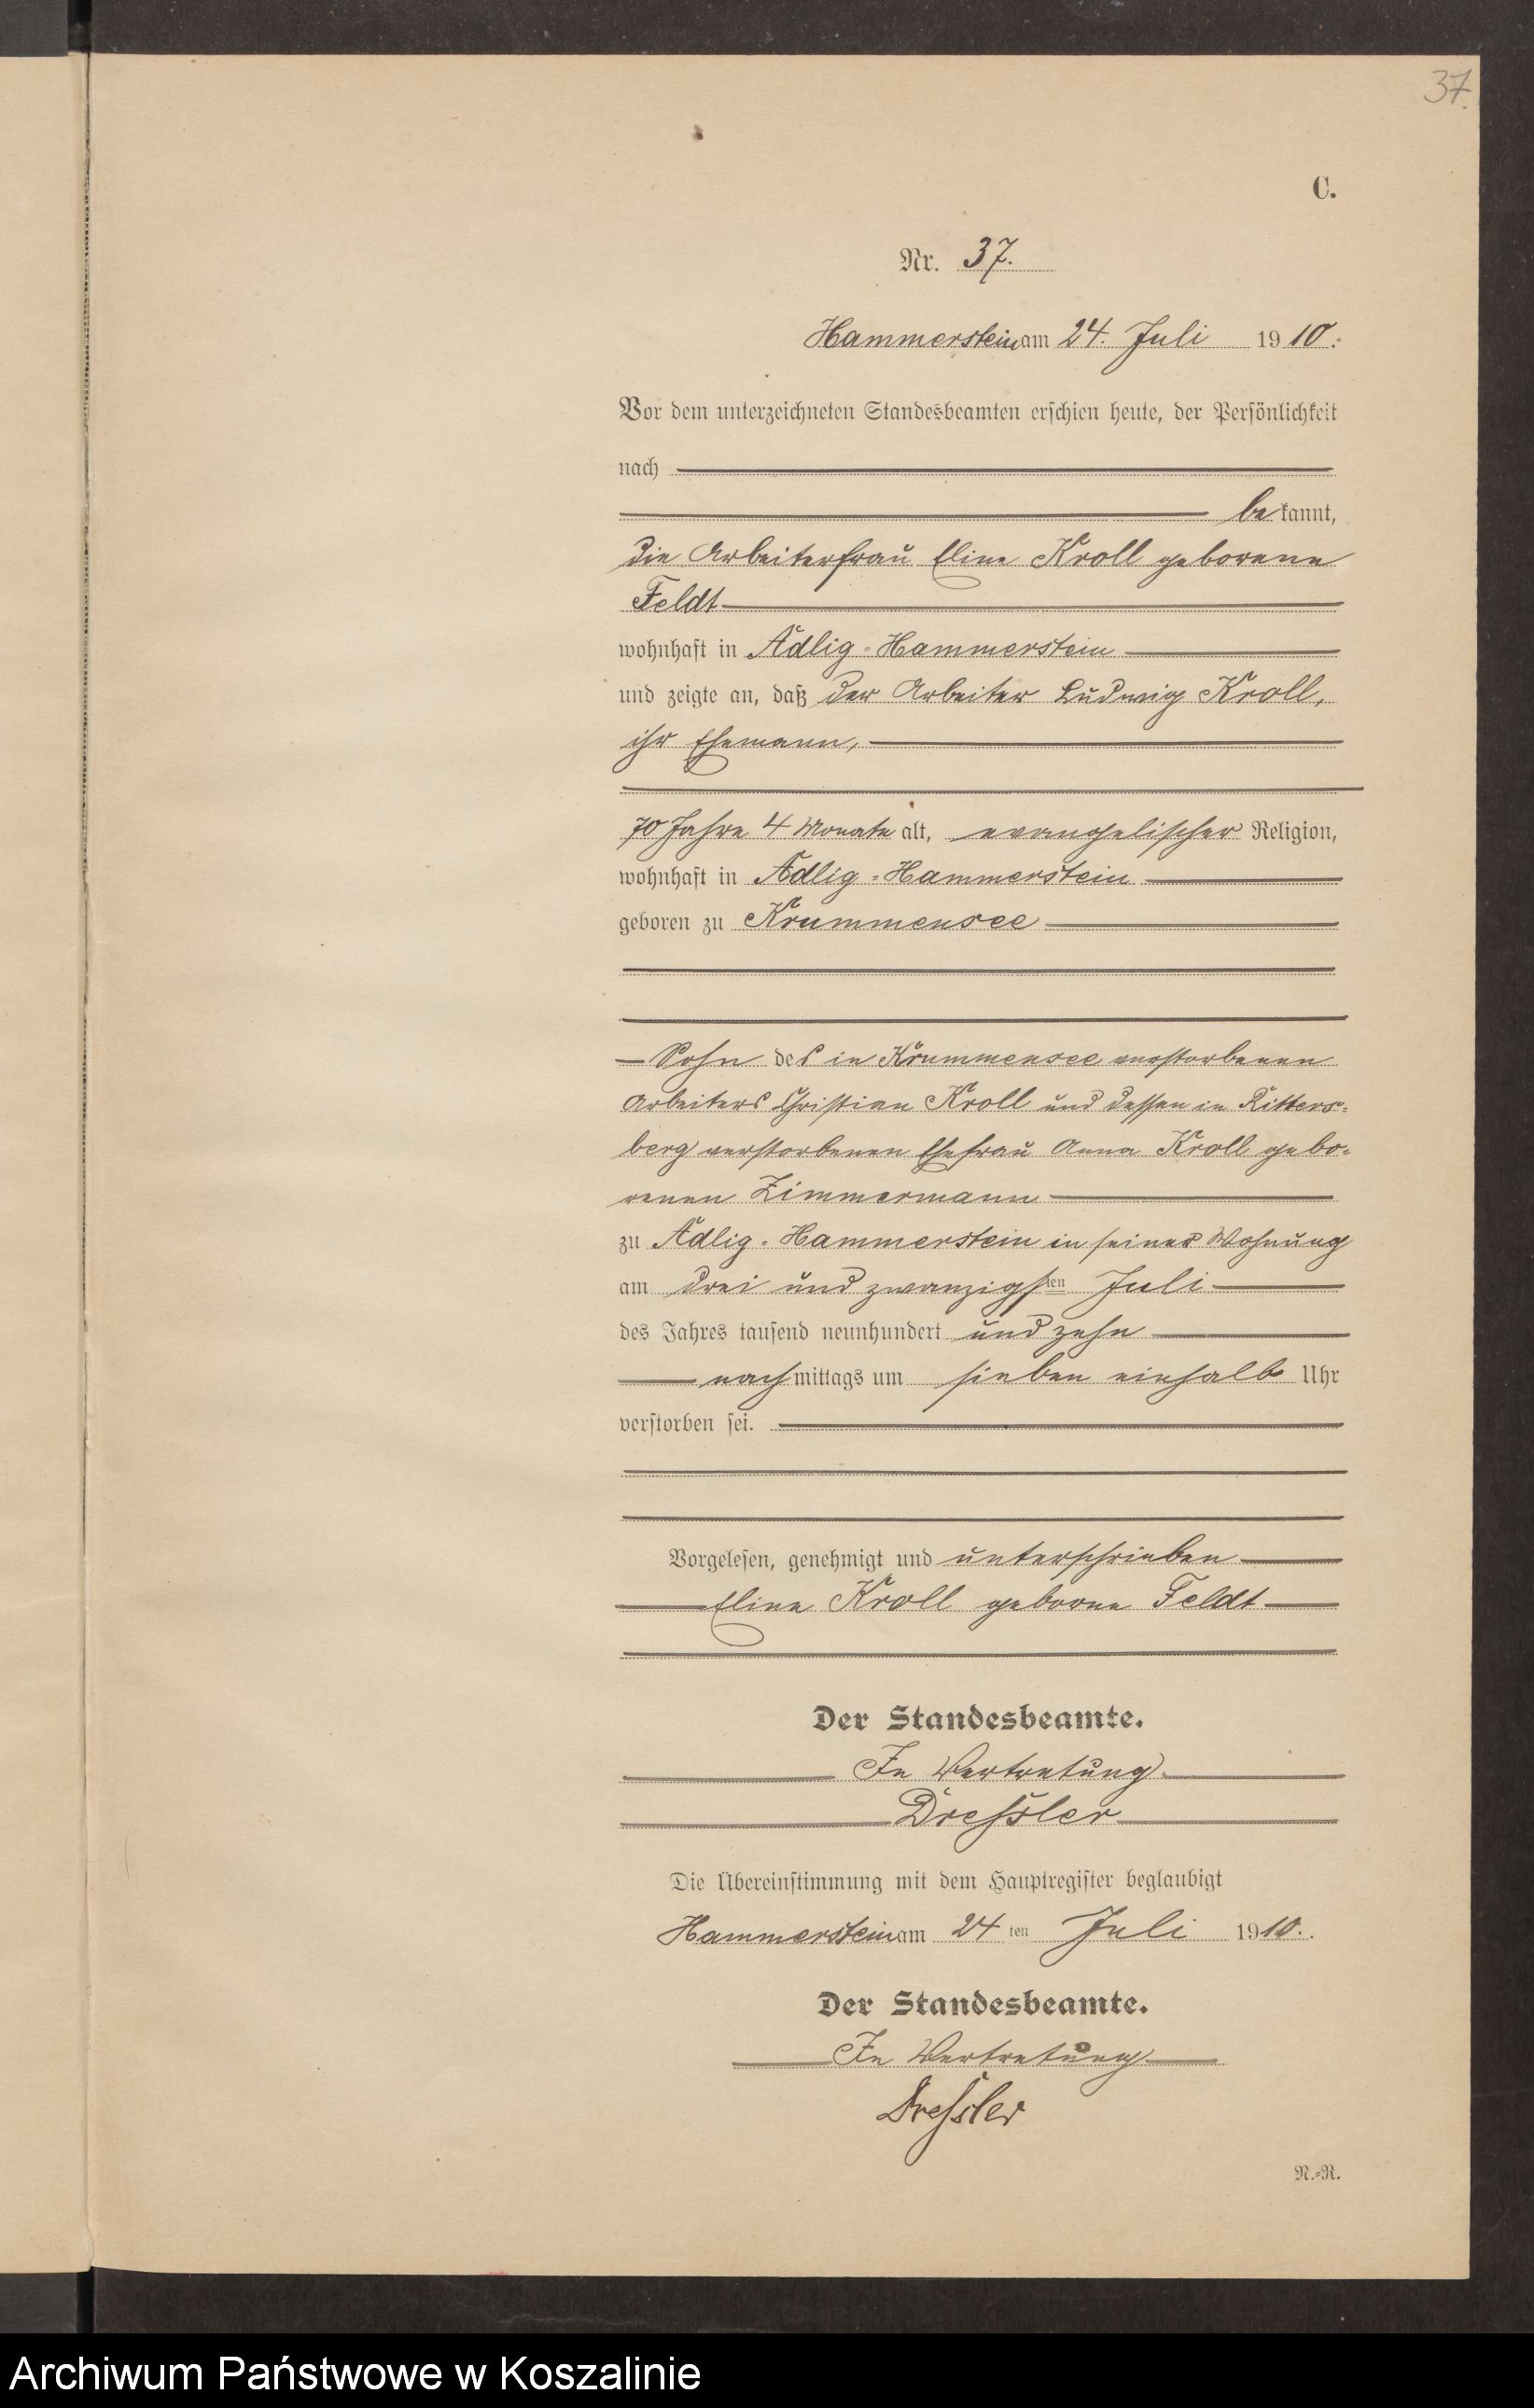 37.
C.
Nr. 37.
Hammerstein am 24. Juli 1910.
Vor dem unterzeichneten Standesbeamten erschien heute, der Persönlichkeit
nach
bekannt,
die Arbeiterfrau Eline Kroll geborene
Feldt
wohnhaft in Adlig-Hammerstein
und zeigte an, daß der Arbeiter Ludwig Kroll,
ihr Ehemann,
70 Jahre 4 Monate alt, evangelischer Religion,
wohnhaft in Adlig-Hammerstein
geboren zu Krummensee
Sohn des in Krummensee verstorbenen
Arbeiters Christian Kroll und dessen in Ritters-
berg verstorbenen Ehefrau Anna Kroll gebo-
renen Zimmermann
zu Adlig-Hammerstein in seiner Wohnung
am drei und zwanzigsten Juli
des Jahres tausend neunhundert und zehn
nachmittags um sieben einhalb Uhr
verstorben sei.
Vorgelesen, genehmigt und unterschrieben
Eline Kroll geborne Feldt
Der Standesbeamte.
In Vertretung
Dressler
Die Übereinstimmung mit dem Hauptregister beglaubigt
Hammerstein am 24ten Juli 1910.
Der Standesbeamte.
In Vertretung
Dressler
N.-R.
Archiwum Państwowe w Koszalinie